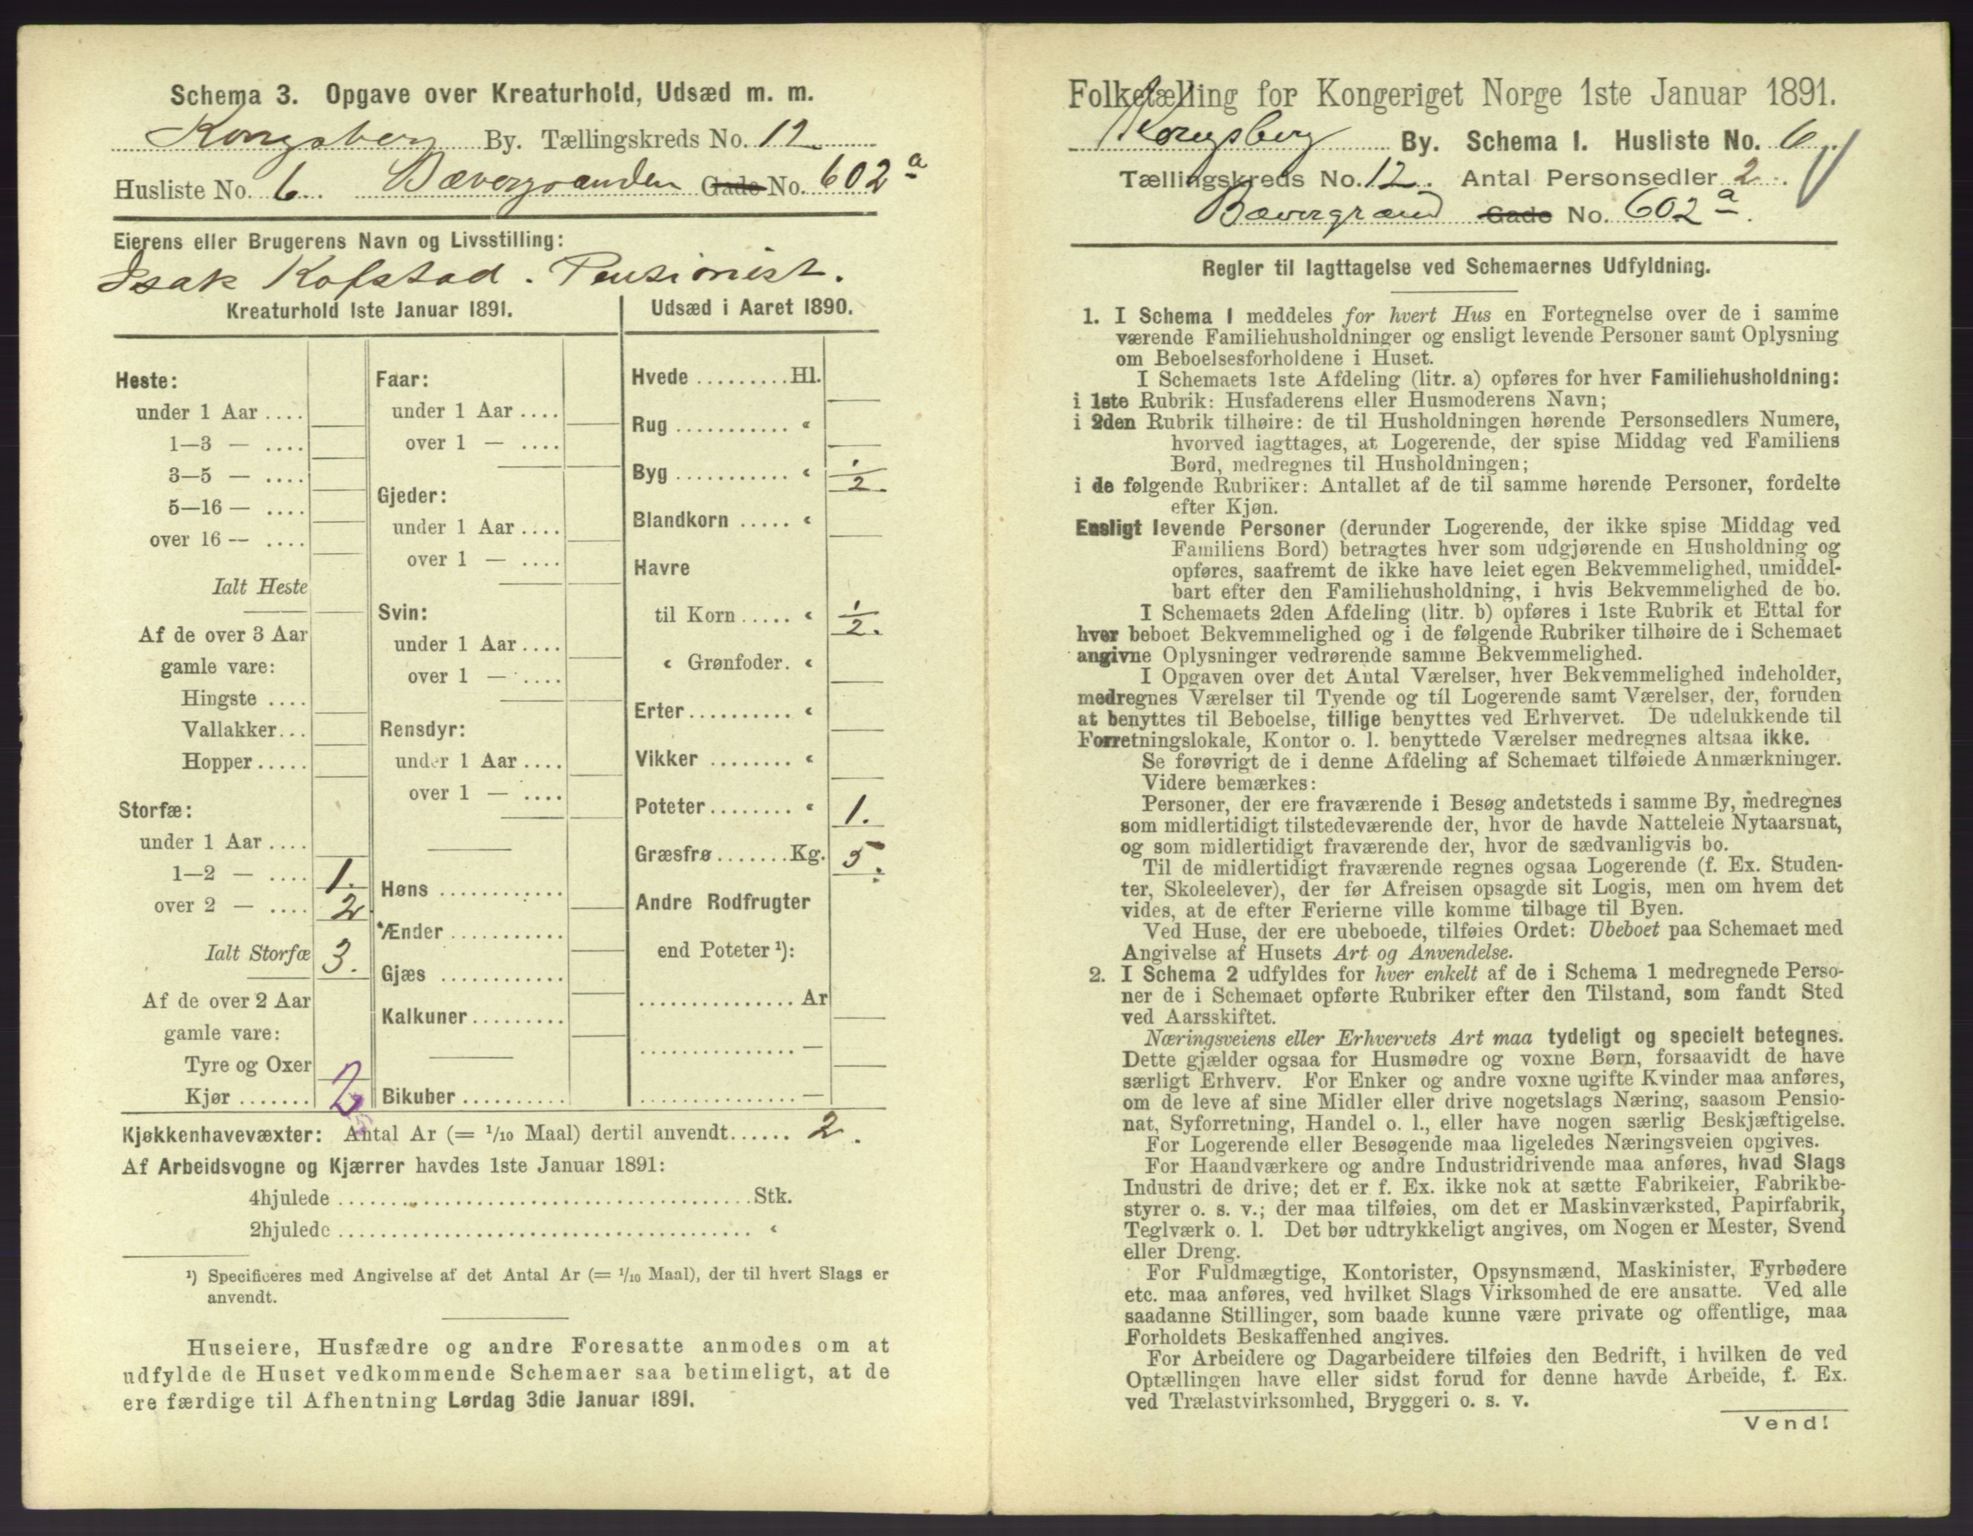 Schema 3. Opgave over Kreaturhold, Udsæd m. m.
Kongsberg By. Tællingskreds No. 12.
Husliste No. 6. Bævergrænden Gade No. 602 a
Eierens eller Brugerens Navn og Livsstilling:
Isak Kofstad. Pensionist.
Kreaturhold 1ste Januar 1891.
Heste:
under 1 Aar ....
1—3 — ....
3—5 — ....
5—16 — ....
over 16 — ....
Ialt Heste
Af de over 3 Aar
gamle vare:
Hingste ....
Vallakker...
Hopper.....
Storfæ:
under 1 Aar ....
1—2 — .... 1.
over 2 — .... 2
Ialt Storfæ 3.
Af de over 2 Aar
gamle vare:
Tyre og Oxer
Kjør ....... 2
Faar:
under 1 Aar ....
over 1 — ....
Gjeder:
under 1 Aar ....
over 1 — ....
Svin:
under 1 Aar ....
over 1 — ....
Rensdyr:
under 1 Aar ....
over 1 — ....
Høns ...........
Ænder ..........
Gjæs ...........
Kalkuner ........
Bikuber .........
Udsæd i Aaret 1890.
Hvede ......... Hl.
Rug ........... «
Byg ........... « 1/2.
Blandkorn ..... «
Havre
til Korn ..... « 1/2.
« Grønfoder. «
Erter .......... «
Vikker ........ «
Poteter ........ « 1.
Græsfrø ....... Kg. 5.
Andre Rodfrugter
end Poteter ¹):
............... Ar
............... —
............... —
Kjøkkenhavevæxter: Antal Ar (= 1/10 Maal) dertil anvendt...... 2.
Af Arbeidsvogne og Kjærrer havdes 1ste Januar 1891:
4hjulede ........................................ Stk.
2hjulede ........................................ «
¹) Specificeres med Angivelse af det Antal Ar (= 1/10 Maal), der til hvert Slags er
anvendt.
Huseiere, Husfædre og andre Foresatte anmodes om at
udfylde de Huset vedkommende Schemaer saa betimeligt, at de
ere færdige til Afhentning Lørdag 3die Januar 1891.
Folketælling for Kongeriget Norge 1ste Januar 1891.
Kongsberg By. Schema I. Husliste No. 6.
Tællingskreds No. 12. Antal Personsedler 2.
Bævergrænd Gade No. 602 a.
Regler til Iagttagelse ved Schemaernes Udfyldning.
1. I Schema I meddeles for hvert Hus en Fortegnelse over de i samme
værende Familiehusholdninger og ensligt levende Personer samt Oplysning
om Beboelsesforholdene i Huset.
I Schemaets 1ste Afdeling (litr. a) opføres for hver Familiehusholdning:
i 1ste Rubrik: Husfaderens eller Husmoderens Navn;
i 2den Rubrik tilhøire: de til Husholdningen hørende Personsedlers Numere,
hvorved iagttages, at Logerende, der spise Middag ved Familiens
Bord, medregnes til Husholdningen;
i de følgende Rubriker: Antallet af de til samme hørende Personer, fordelte
efter Kjøn.
Ensligt levende Personer (derunder Logerende, der ikke spise Middag ved
Familiens Bord) betragtes hver som udgjørende en Husholdning og
opføres, saafremt de ikke have leiet egen Bekvemmelighed, umiddel-
bart efter den Familiehusholdning, i hvis Bekvemmelighed de bo.
I Schemaets 2den Afdeling (litr. b) opføres i 1ste Rubrik et Ettal for
hver beboet Bekvemmelighed og i de følgende Rubriker tilhøire de i Schemaet
angivne Oplysninger vedrørende samme Bekvemmelighed.
I Opgaven over det Antal Værelser, hver Bekvemmelighed indeholder,
medregnes Værelser til Tyende og til Logerende samt Værelser, der, foruden
at benyttes til Beboelse, tillige benyttes ved Erhvervet. De udelukkende til
Forretningslokale, Kontor o. l. benyttede Værelser medregnes altsaa ikke.
Se forøvrigt de i denne Afdeling af Schemaet tilføiede Anmærkninger.
Videre bemærkes:
Personer, der ere fraværende i Besøg andetsteds i samme By, medregnes
som midlertidigt tilstedeværende der, hvor de havde Natteleie Nytaarsnat,
og som midlertidigt fraværende der, hvor de sædvanligvis bo.
Til de midlertidigt fraværende regnes ogsaa Logerende (f. Ex. Studen-
ter, Skoleelever), der før Afreisen opsagde sit Logis, men om hvem det
vides, at de efter Ferierne ville komme tilbage til Byen.
Ved Huse, der ere ubeboede, tilføies Ordet: Ubeboet paa Schemaet med
Angivelse af Husets Art og Anvendelse.
2. I Schema 2 udfyldes for hver enkelt af de i Schema 1 medregnede Perso-
ner de i Schemaet opførte Rubriker efter den Tilstand, som fandt Sted
ved Aarsskiftet.
Næringsveiens eller Erhvervets Art maa tydeligt og specielt betegnes.
Dette gjælder ogsaa for Husmødre og voxne Børn, forsaavidt de have
særligt Erhverv. For Enker og andre voxne ugifte Kvinder maa anføres,
om de leve af sine Midler eller drive nogetslags Næring, saasom Pensio-
nat, Syforretning, Handel o. l., eller have nogen særlig Beskjæftigelse.
For Logerende eller Besøgende maa ligeledes Næringsveien opgives.
For Haandværkere og andre Industridrivende maa anføres, hvad Slags
Industri de drive; det er f. Ex. ikke nok at sætte Fabrikeier, Fabrikbe-
styrer o. s. v.; der maa tilføies, om det er Maskinværksted, Papirfabrik,
Teglværk o. l. Det bør udtrykkeligt angives, om Nogen er Mester, Svend
eller Dreng.
For Fuldmægtige, Kontorister, Opsynsmænd, Maskinister, Fyrbødere
etc. maa anføres, ved hvilket Slags Virksomhed de ere ansatte. Ved alle
saadanne Stillinger, som baade kunne være private og offentlige, maa
Forholdets Beskaffenhed angives.
For Arbeidere og Dagarbeidere tilføies den Bedrift, i hvilken de ved
Optællingen have eller sidst forud for denne havde Arbeide, f. Ex.
ved Trælastvirksomhed, Bryggeri o. s. v.
Vend!